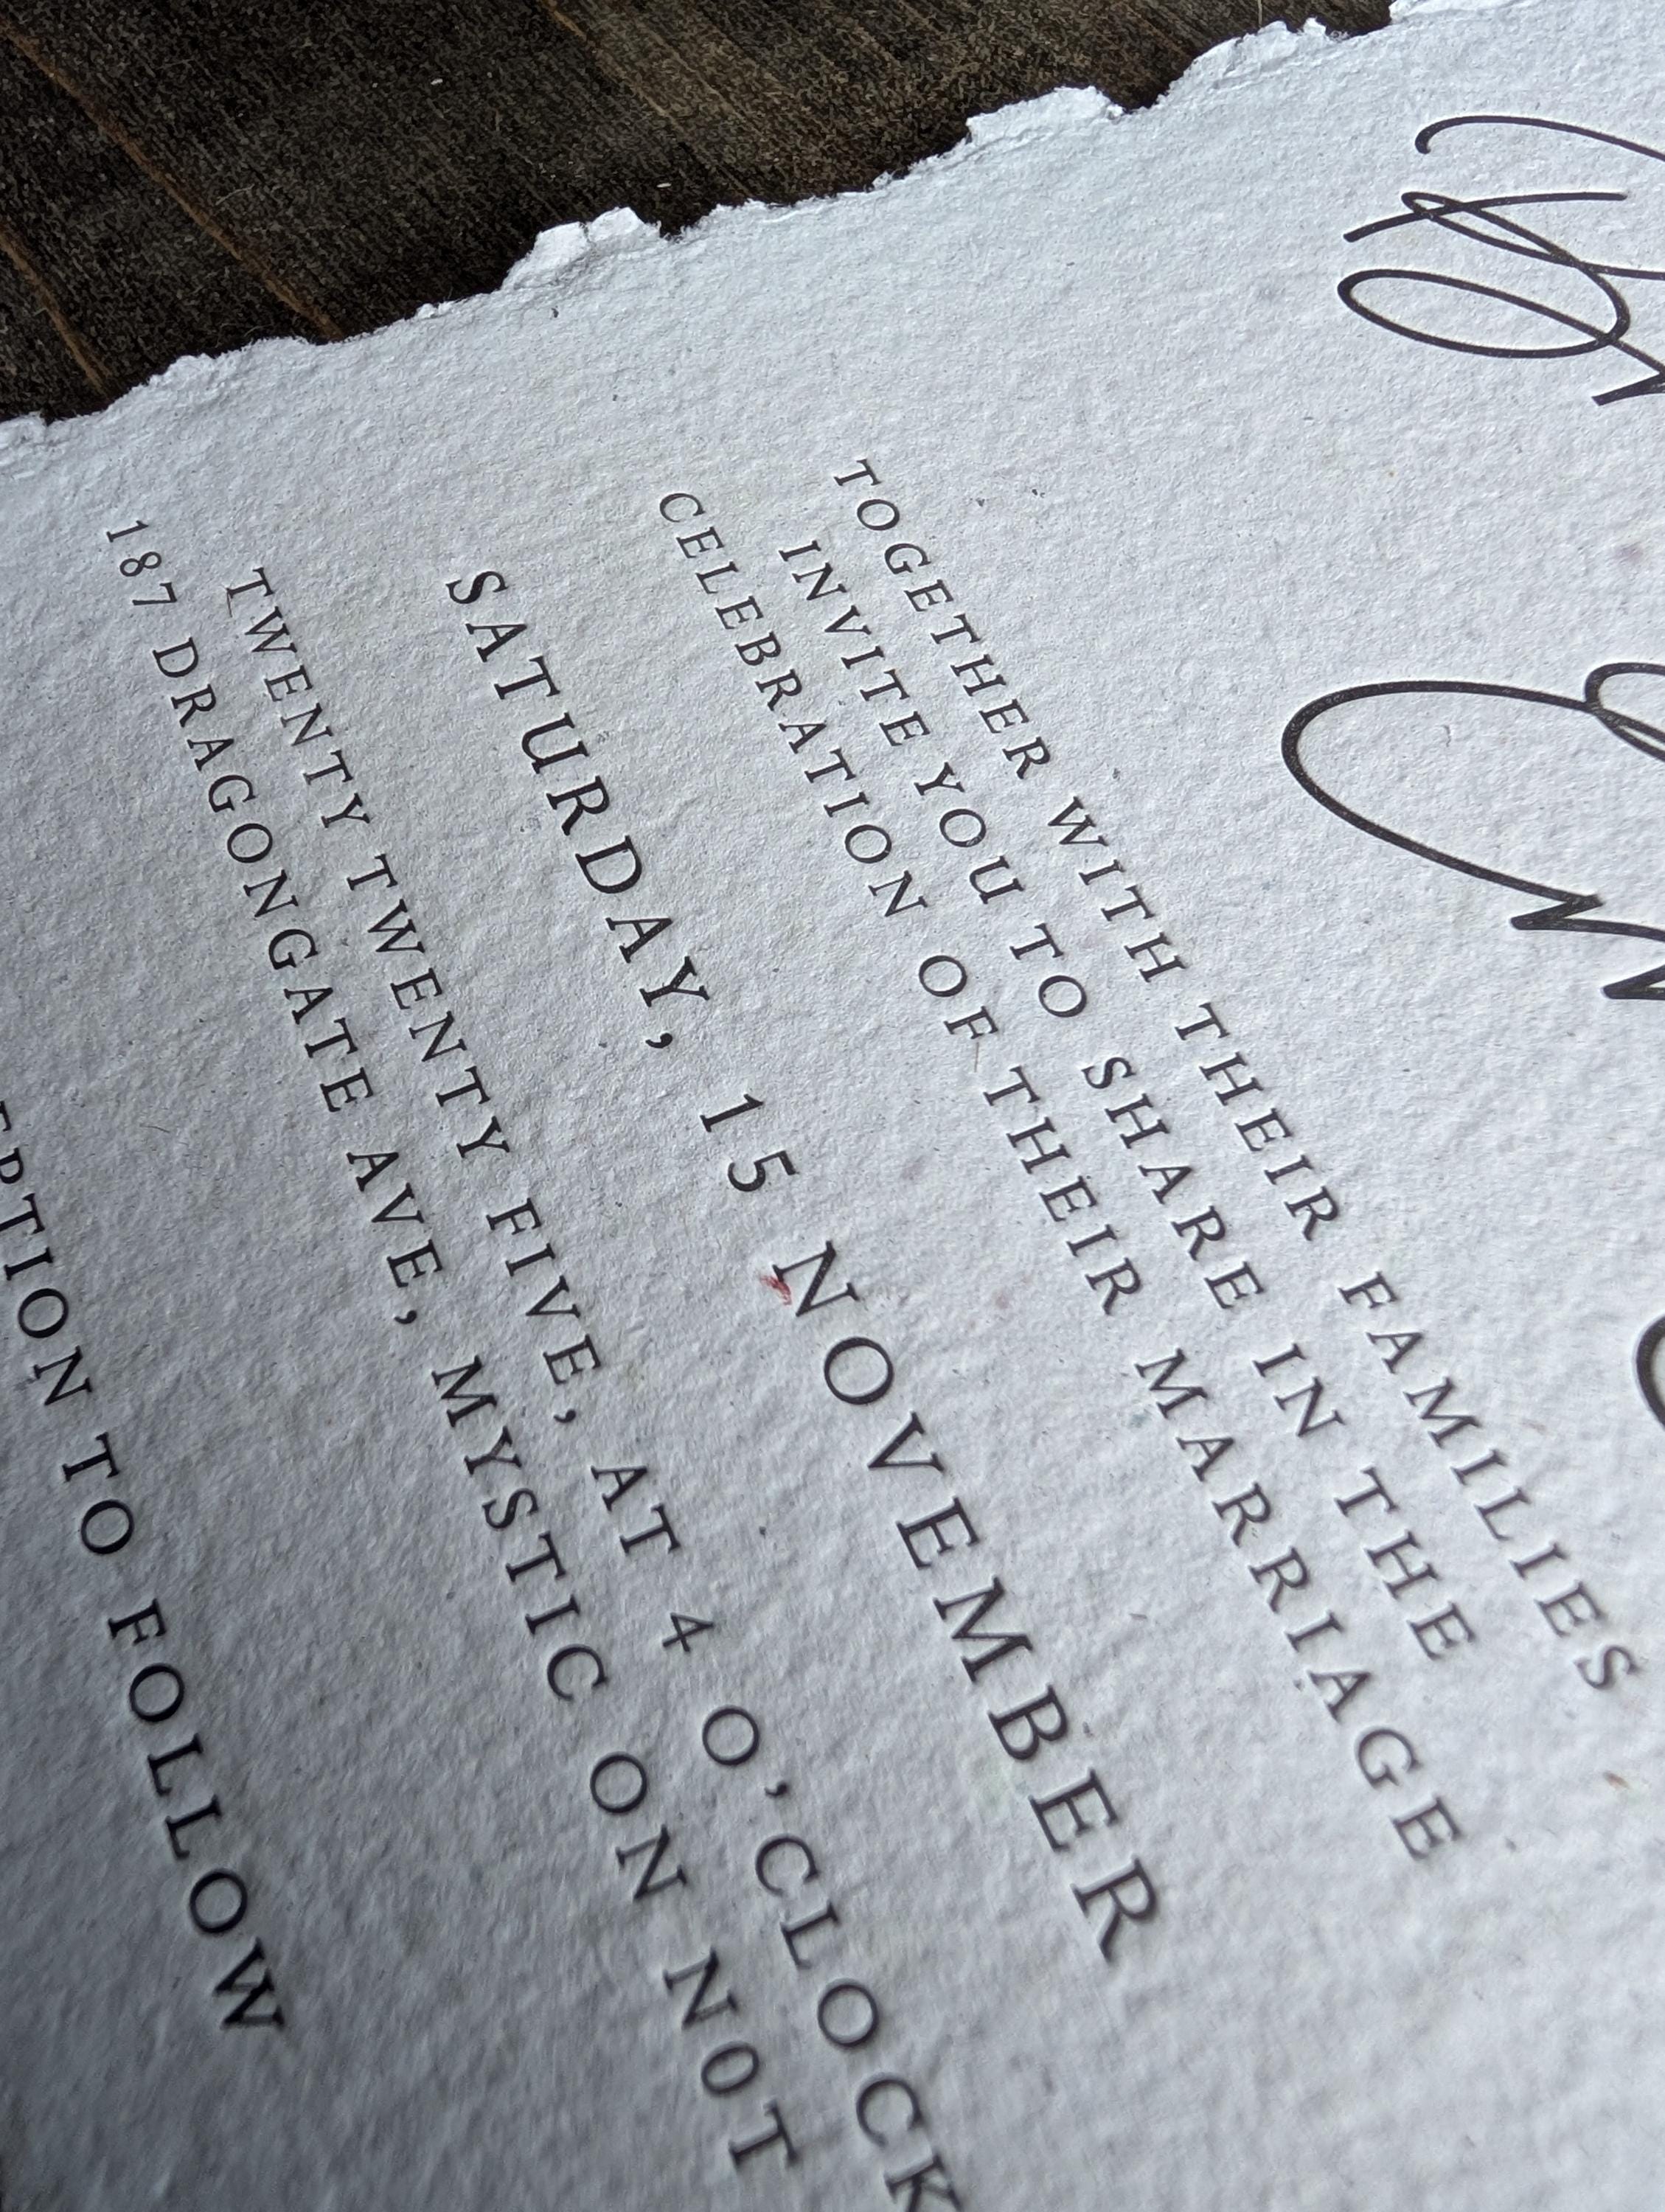 TOGETHER WITH THEIR FAMILIES
INVITE YOU TO SHARE IN THE
CELEBRATION OF THEIR MARRIAGE
SATURDAY, 15 NOVEMBER
TWENTY TWENTY FIVE, AT 4 O'CLOCK
187 DRAGONGATE AVE, MYSTIC ON N0T
TO FOLLOW